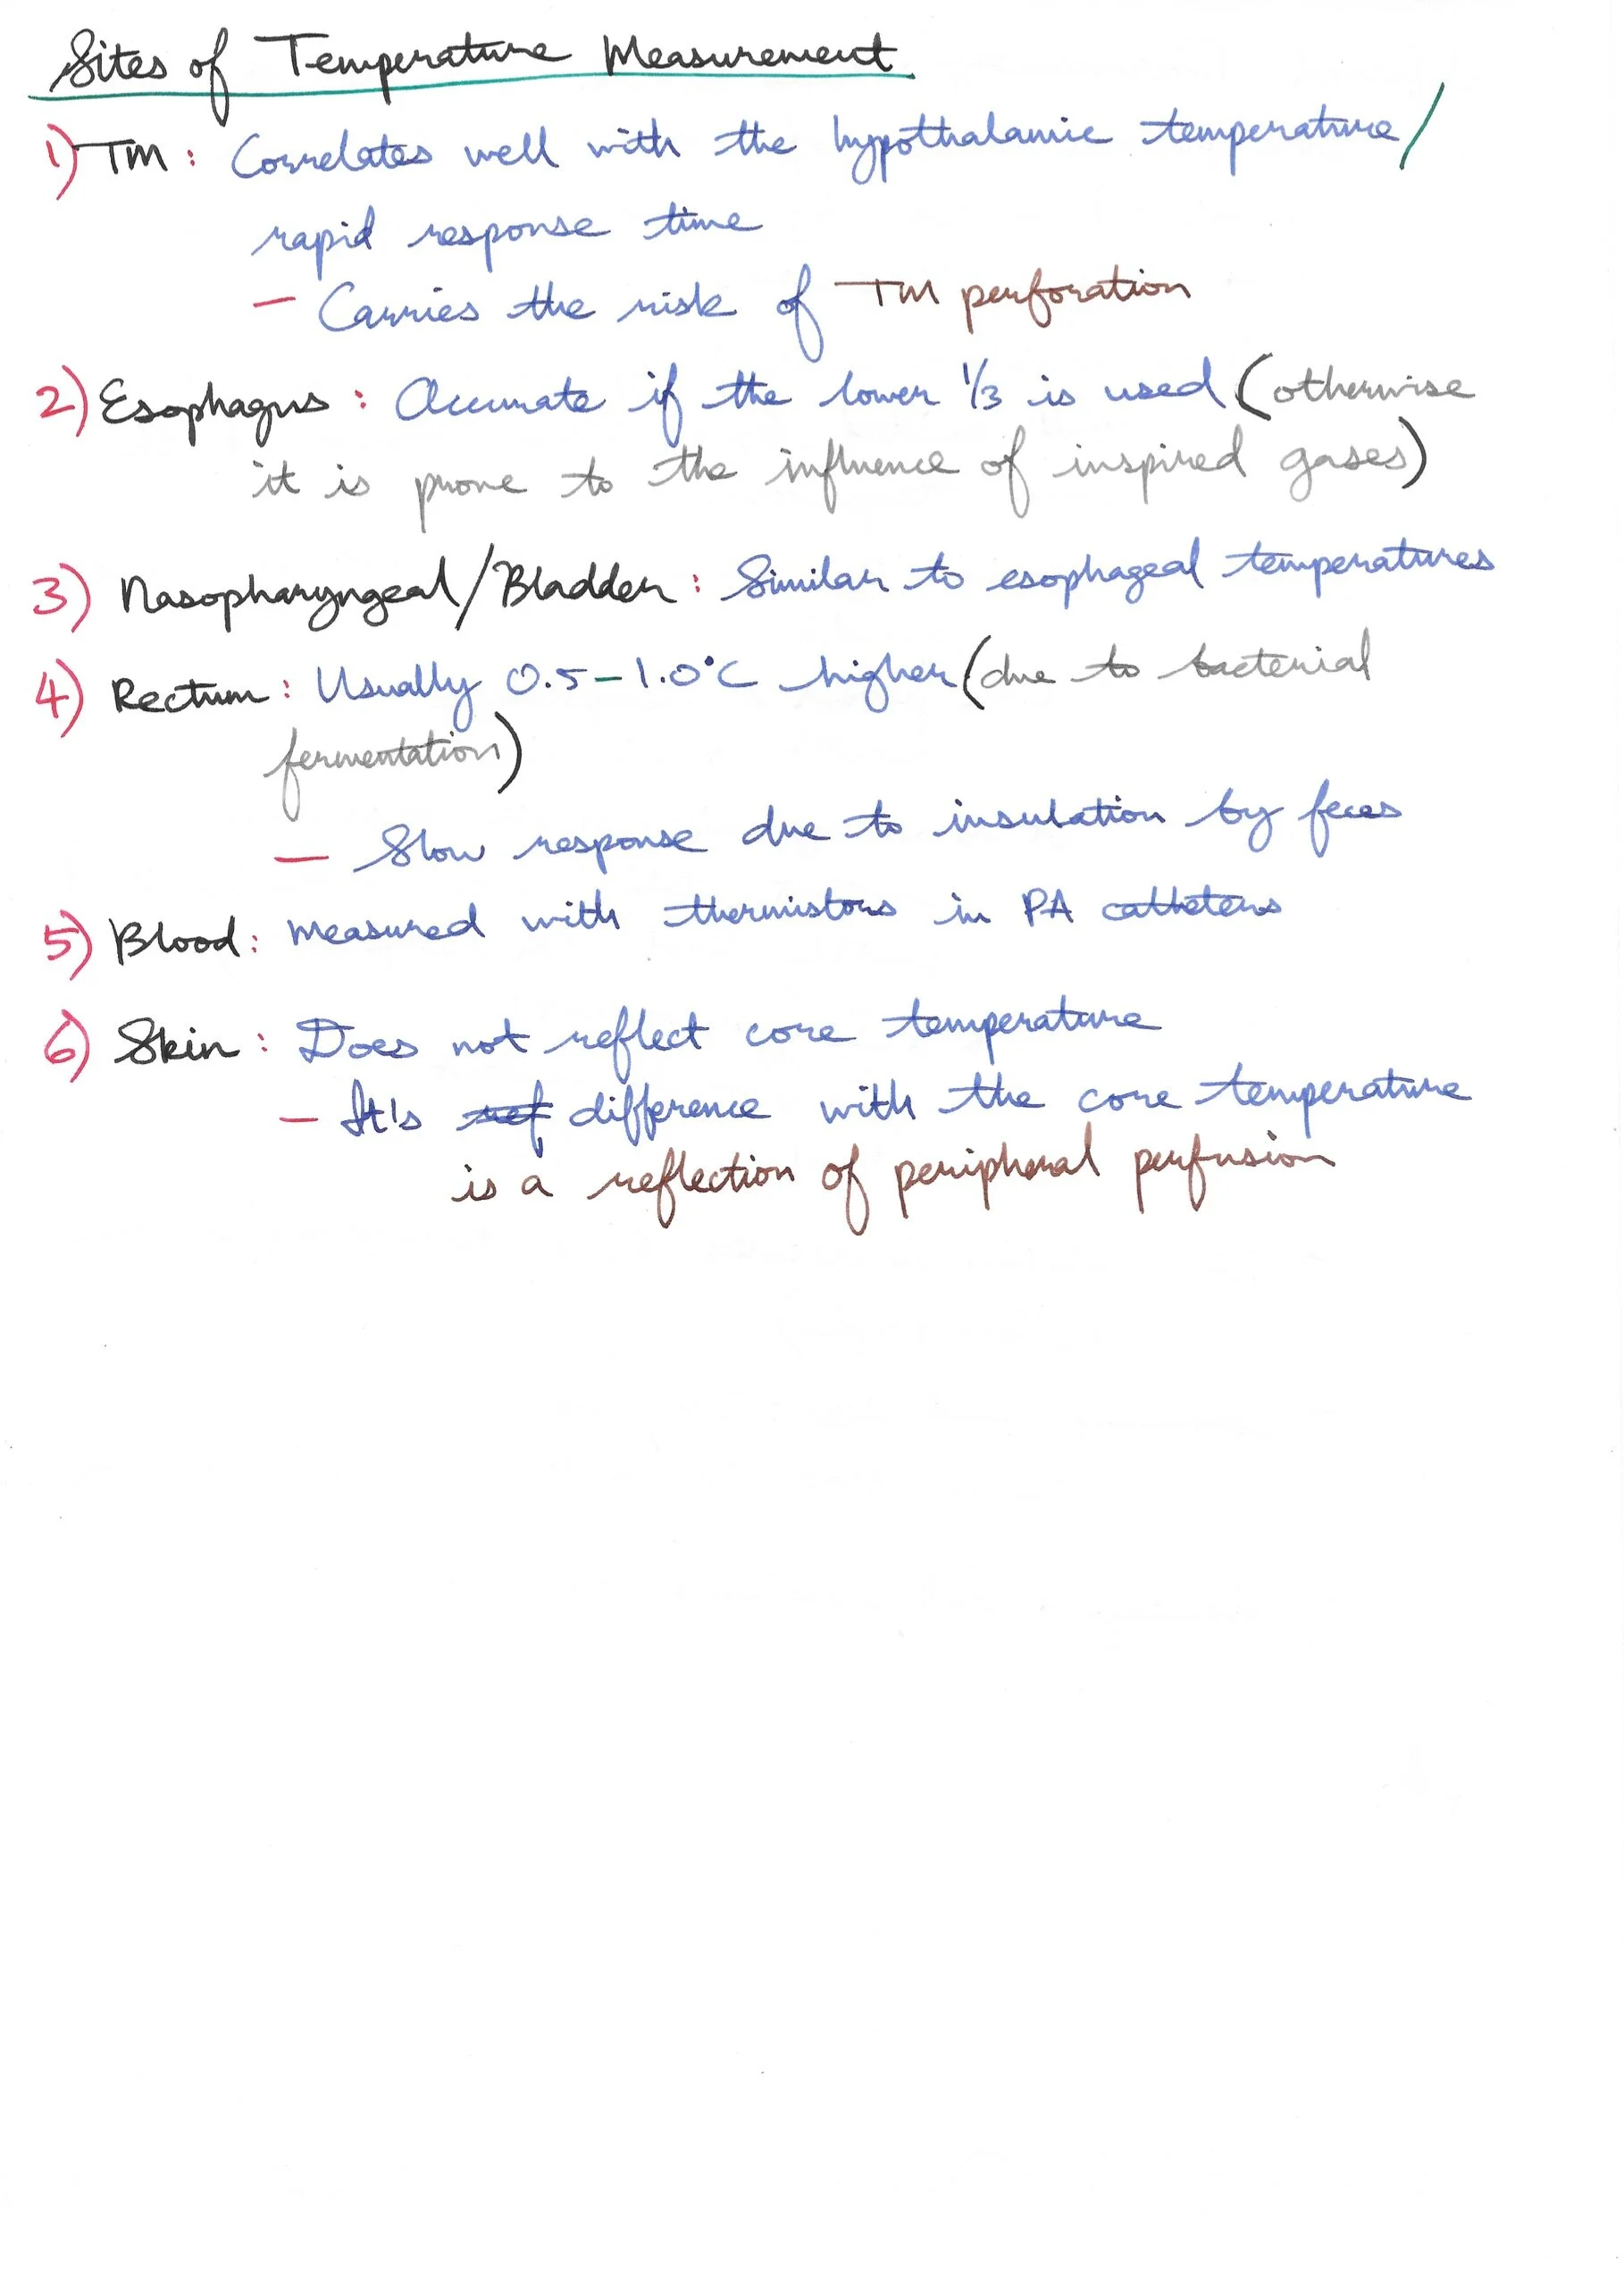 Sites of Temperature Measurement
1) TM : Correlates well with the hypothalamic temperature/
rapid response time
— Carries the risk of TM perforation
2) Esophagus : Accurate if the lower 1/3 is used (otherwise
it is prone to the influence of inspired gases)
3) Nasopharyngeal/Bladder : Similar to esophageal temperatures
4) Rectum : Usually 0.5–1.0°C higher (due to bacterial
fermentation)
— Slow response due to insulation by feces
5) Blood : Measured with thermistors in PA catheters
6) Skin : Does not reflect core temperature
— It's difference with the core temperature
is a reflection of peripheral perfusion